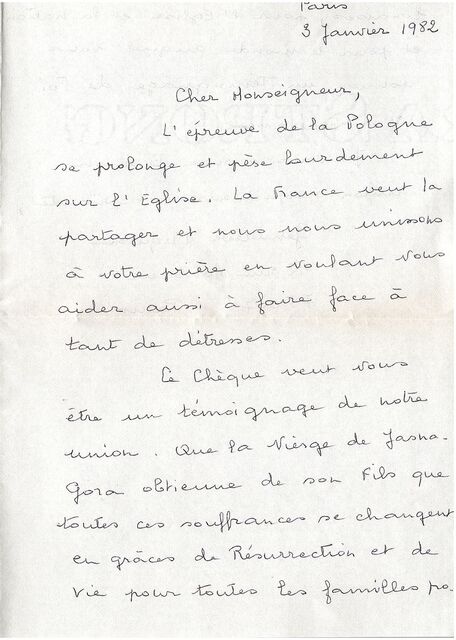 Paris
3 Janvier 1982
Cher Monseigneur,
L'épreuve de la Pologne
se prolonge et pèse lourdement
sur l'Eglise. La France veut la
partager et nous nous unissons
à votre prière en voulant vous
aider aussi à faire face à
tant de détresses.
Ce Chèque veut vous
être un témoignage de notre
union. Que la Vierge de Jasna-
Gora obtienne de son Fils que
toutes ces souffrances se changent
en grâces de Résurrection et de
vie pour toutes les familles po-